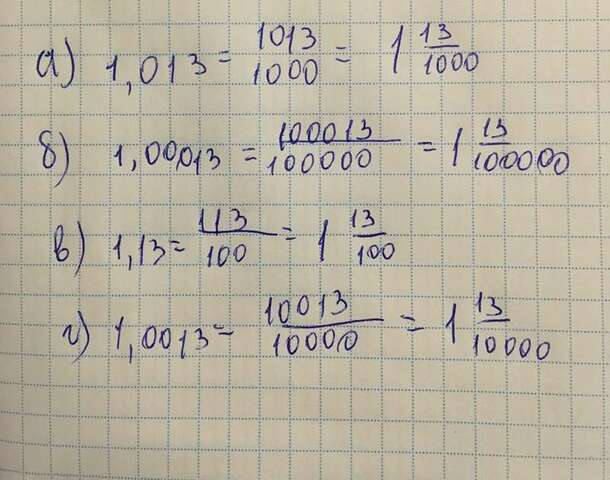 а) 1,013 = 1013/1000 = 1 13/1000
б) 1,00013 = 100013/100000 = 1 13/100000
в) 1,13 = 113/100 = 1 13/100
г) 1,0013 = 10013/10000 = 1 13/10000